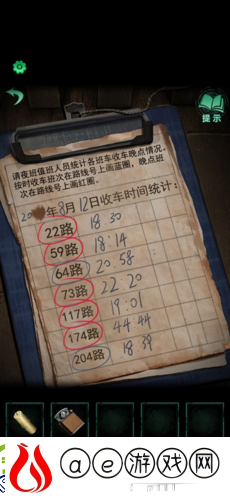 提示
请夜班值班人员统计各班车收车晚点情况。
按时收车班次在路线号上画蓝圈，晚点班
次在路线号上画红圈。
年8月12日收车时间统计：
22路 18.30
59路 18:14
64路 20.58
73路 22 20
117路 19:01
174路 44:44
204路 18:39
ae游戏网